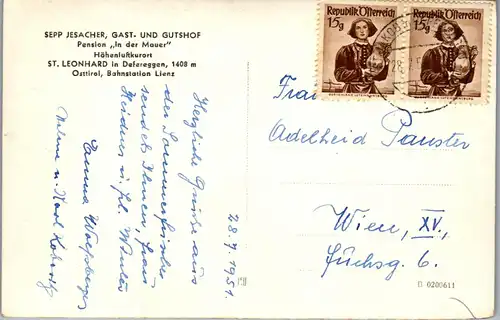 SEPP JESACHER, GAST- UND GUTSHOF
Pension „In der Mauer"
Höhenluftkurort
ST. LEONHARD in Defereggen, 1408 m
Osttirol, Bahnstation Lienz
Republik Österreich
15g
Republik Österreich
15g
28.7.1951.
Herzliche Grüße aus
der Sommerfrische
sendet Ihnen, Frau
u. Frl.
Emma
u. Karl
Frau
Adelheid Pauster
Wien, XV.,
Fuchsg. 6.
D 0200611